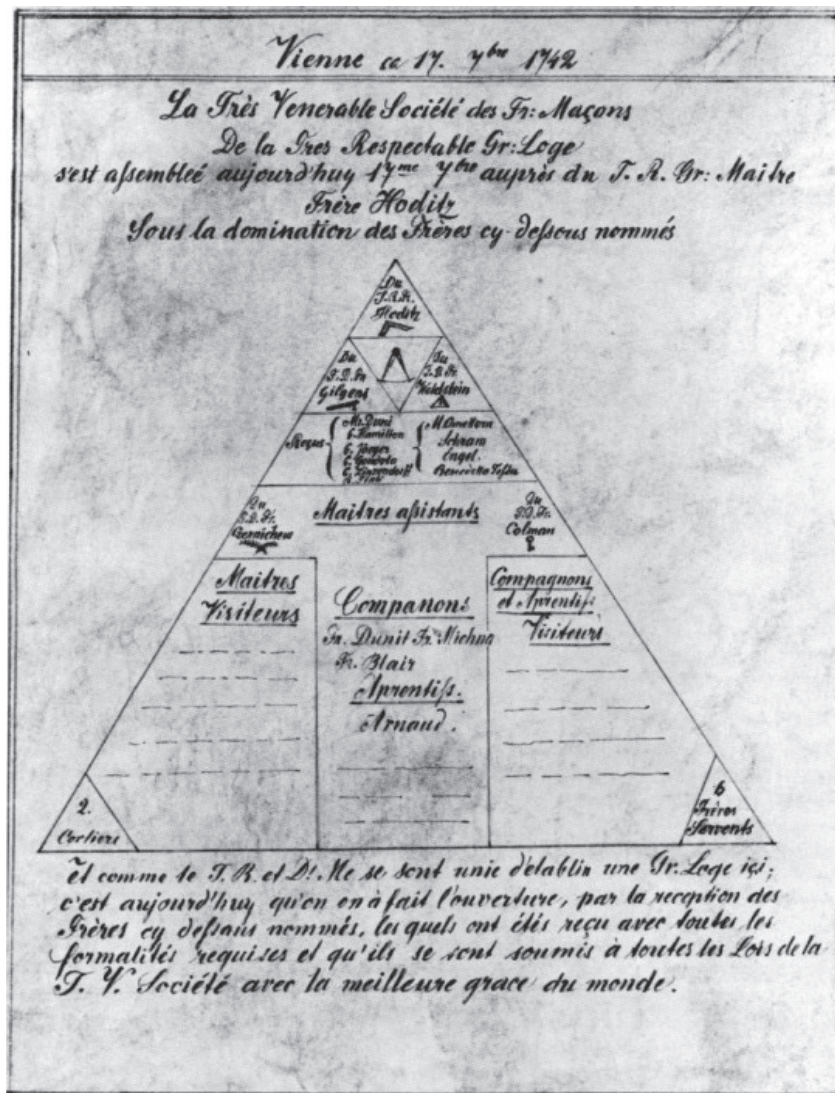 Vienne ce 17. 7bre 1742
La Très Venerable Société des Fr: Maçons
De la Tres Respectable Gr: Loge
s'est assembleé aujourd'huy 17me 7bre auprès du T. R. Gr: Maitre
Frère Hoditz
Sous la domination des Frères cy-dessous nommés
Du
T.R.R.
Hoditz
Du
T.D. Fr
Gilgens
Du
T.D. Fr
Reçus
Mr. Duni
C. Hamilton
C. Gondola
C. Zinzendorff
Schram
Engel.
Du
S.D. Fr.
Maitres assistants
Du
S.D. Fr.
Colman
Maitres
Visiteurs
Companons
Fr. Dunit Fr. Michna
Fr. Blair
Aprentiss.
Arnaud.
Compagnons
et Aprentiss
Visiteurs
2.
6
Frères
Servents
Et comme le T. R. et D! Me se sont unie d'etablir une Gr. Loge içi;
c'est aujourd'huy qu'on en à fait l'ouverture, par la reception des
Frères cy dessous nommés, les quels ont étés reçu avec toutes les
formalités requises et qu'ils se sont soumis à toutes les Lois de la
T. V. Société avec la meilleure grace du monde.